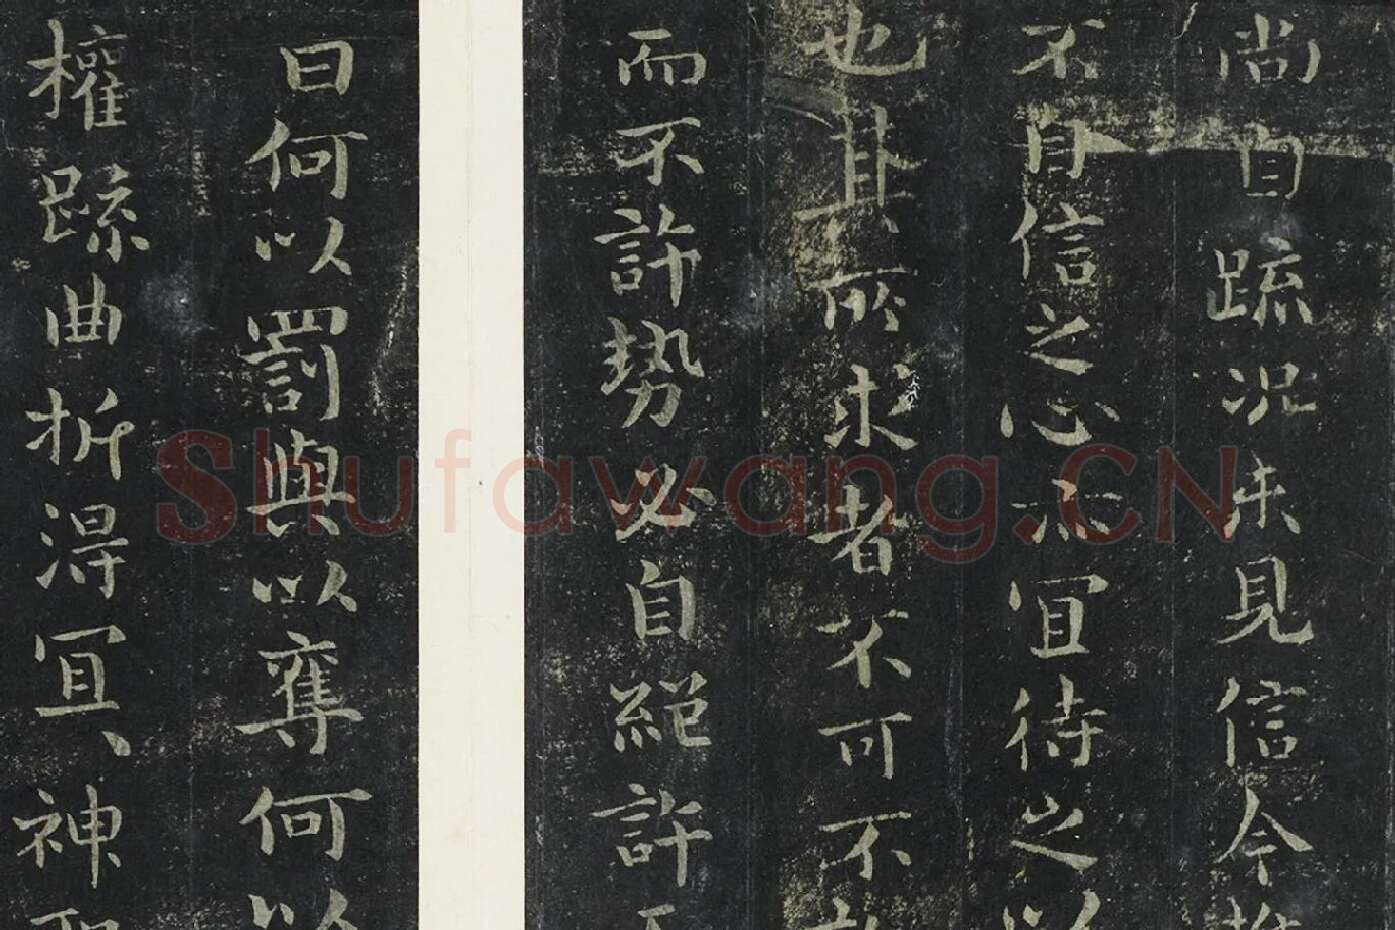 尚自疏況未見信今推
不自信之心亦宜待之以
也其所求者不可不
而不許勢必自絕許
曰何以罰與以奪何以
權疏曲折得宜神聖
Shufawang.CN